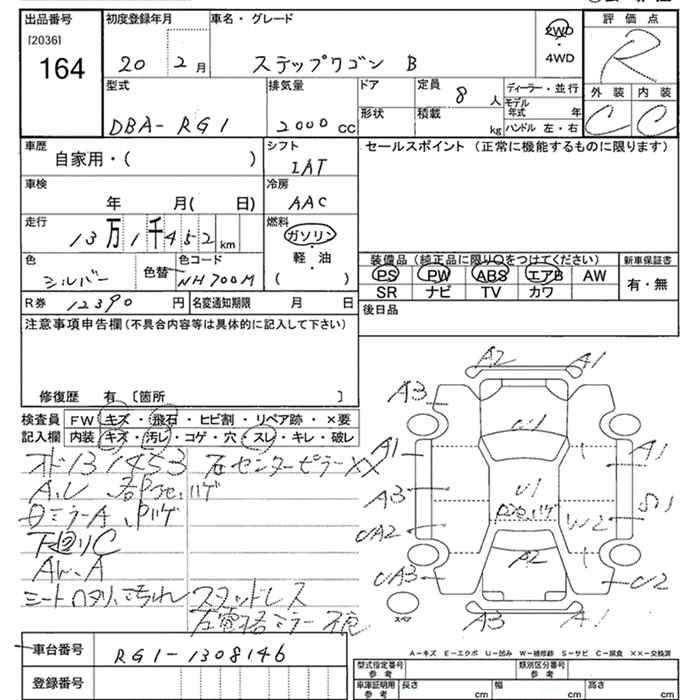 出品番号 初度登録年月 車名・グレード 評価点
[2036]
164 20 2月 ステップワゴン B 2WD・4WD R
型式 排気量 ドア 定員 8人 ディーラー・並行 外装 内装
DBA-RG1 2000 CC 形状 積載 kg モデル年式 年 C C
ハンドル 左・右
車歴 シフト セールスポイント (正常に機能するものに限ります)
自家用・( ) IAT
車検 冷房
年 月( 日) AAC
走行 燃料
13万1千452km ガソリン・軽油・( )
色 色替 色コード 装備品(純正品に限り○をつけてください) 新車保証書
シルバー NH700M PS PW ABS エアB AW 有・無
SR ナビ TV カワ
R券 12390円 名変通知期限 月 日 後日品
注意事項申告欄(不具合内容等は具体的に記入して下さい)
修復歴 有 〔箇所 〕
検査員 FW キズ・飛石・ヒビ割・リペア跡・×要
記入欄 内装 キズ・汚レ・コゲ・穴・スレ・キレ・破レ
オド131453 右センターピラーXX
A.U 各部 ハゲ
ミラーA ハゲ
下廻りC
AW.A
シート 汚れ スタッドレス
左電格ミラー不良
A2 A1
A3
U1
A1 A1
A3 U1 S1
UA2 W2
A2
UA3 U2
スペア A3 A1
A-キズ E-エクボ U-凹み W-補修跡 S-サビ C-腐食 ××-交換済
車台番号 RG1-1308146 型式指定番号 参考 類別区分番号 参考
登録番号 車庫証明用 参考 長さ cm 幅 cm 高さ cm